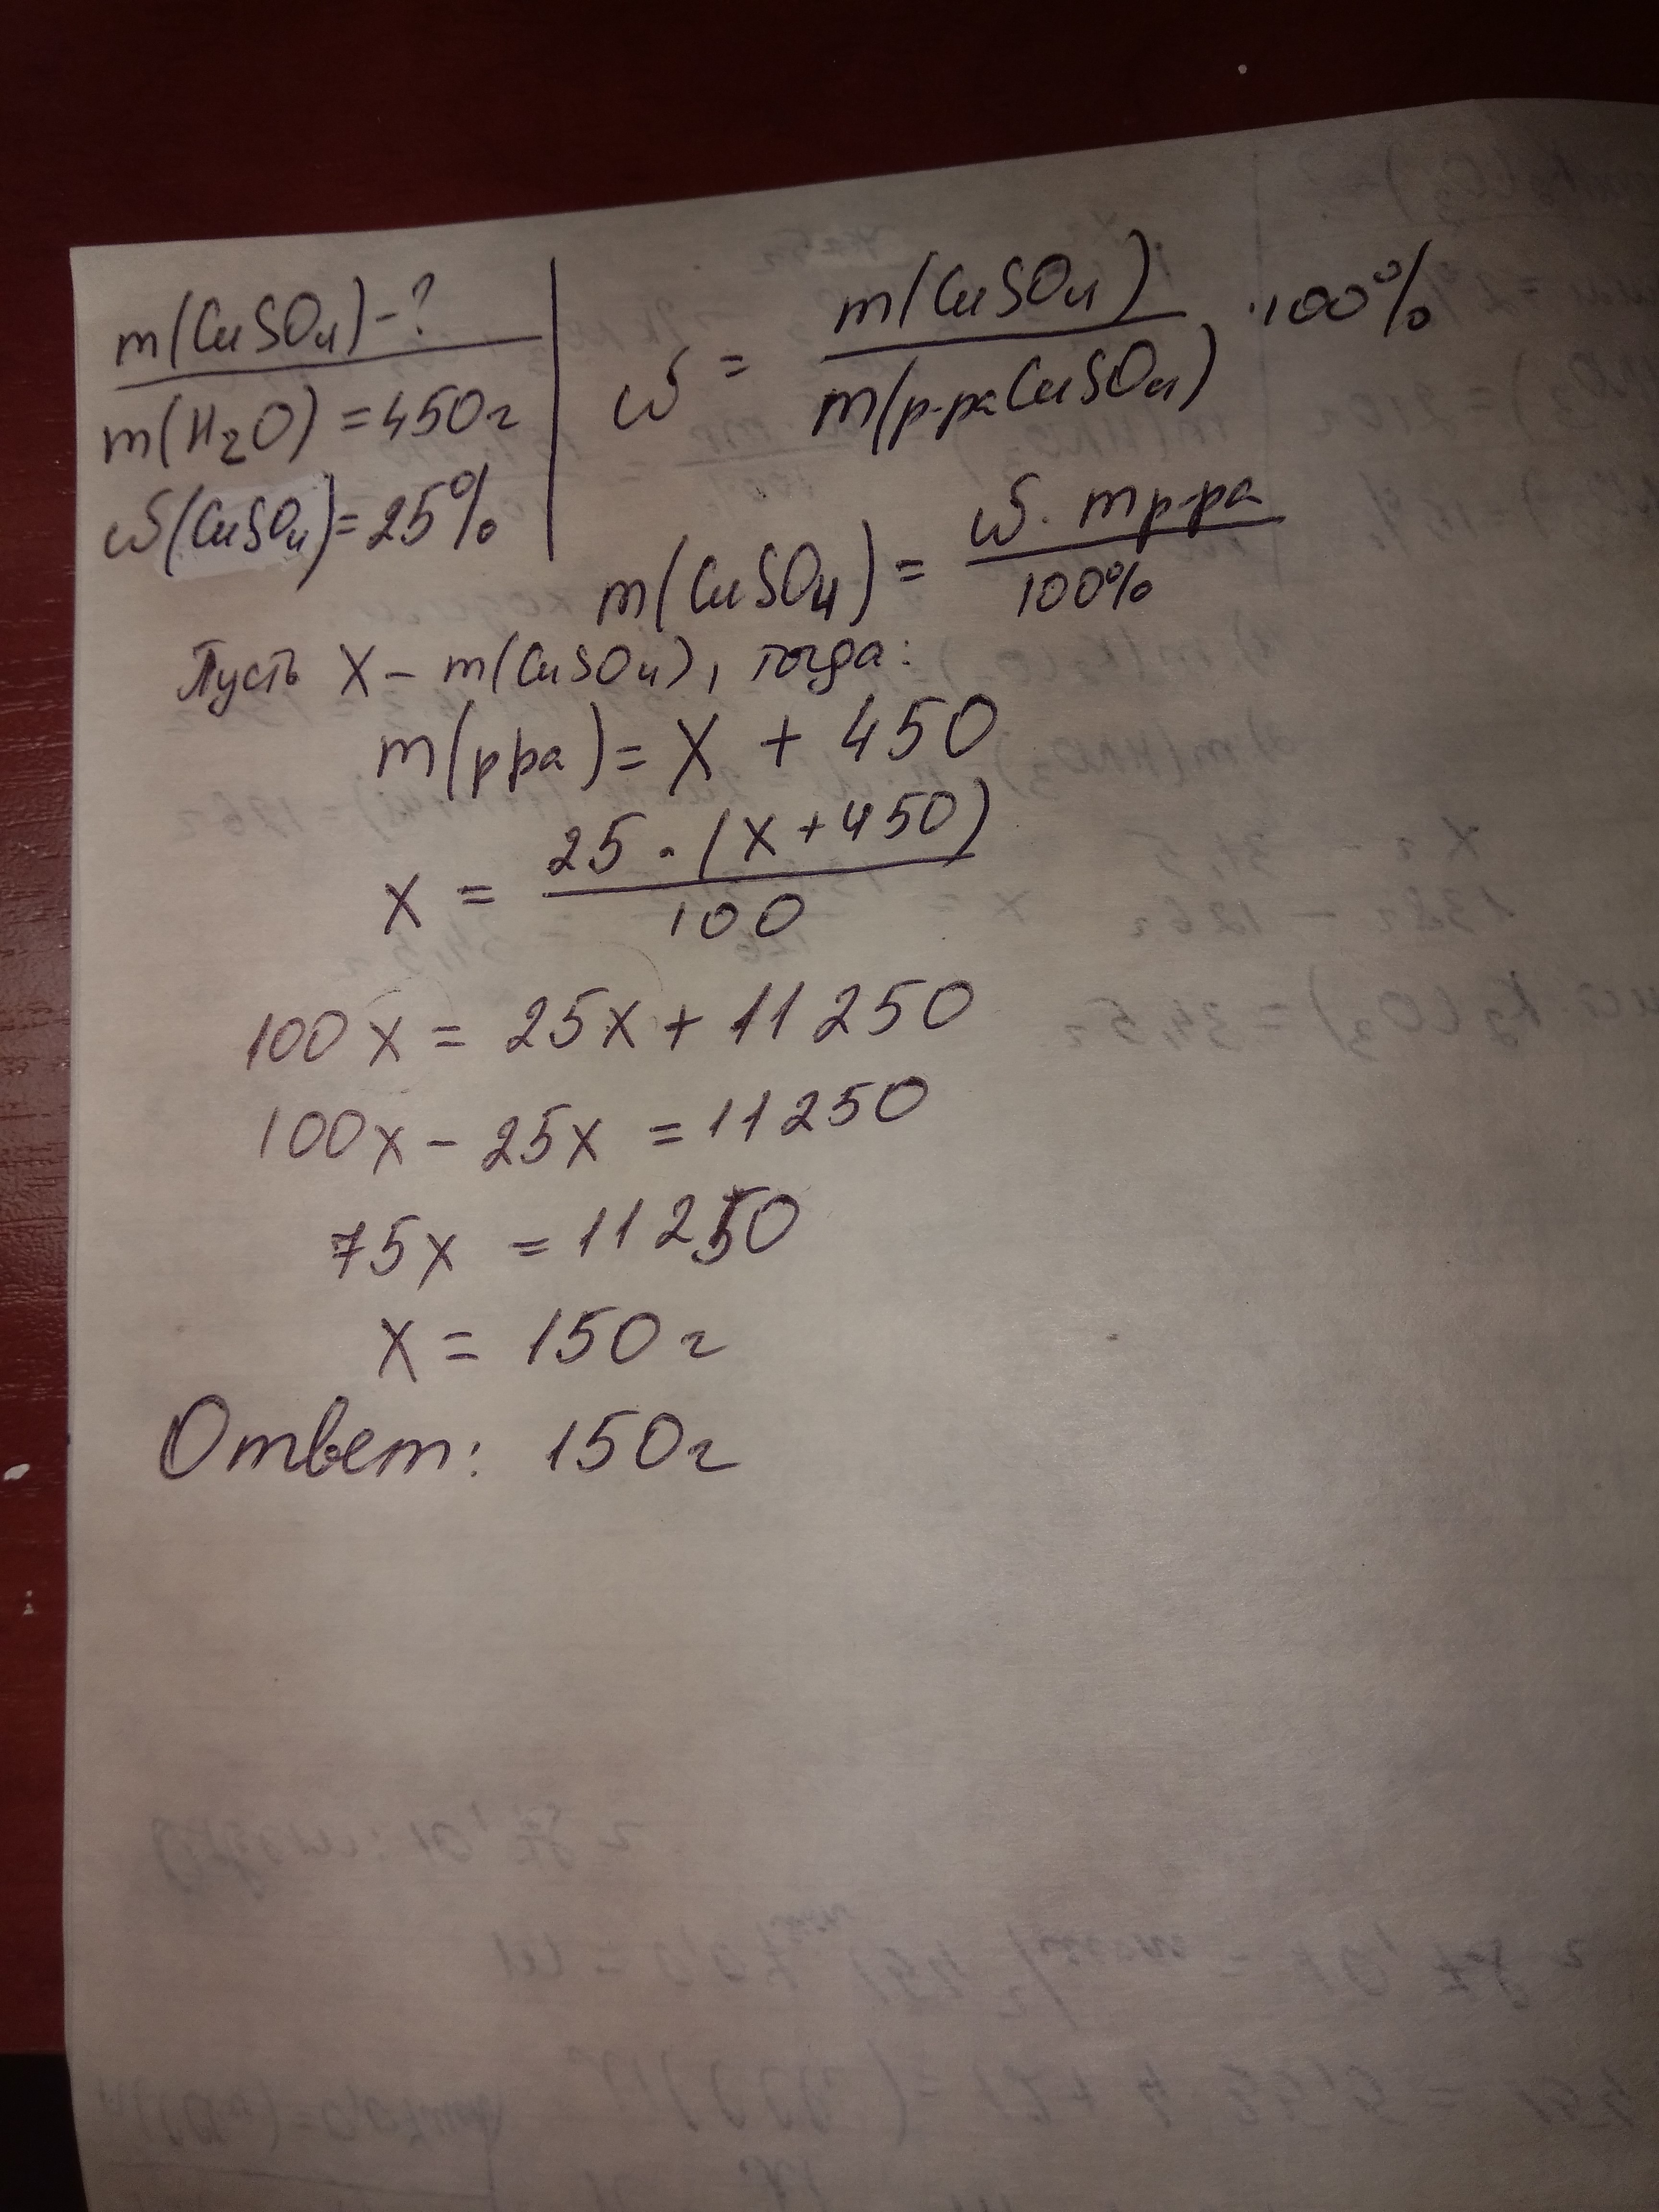 m(CuSO4) - ?
m(H2O) = 450г
ω(CuSO4) = 25%
ω = m(CuSO4) / m(р-ра CuSO4) · 100%
m(CuSO4) = ω · m р-ра / 100%
Пусть x - m(CuSO4), тогда:
m(рра) = x + 450
x = 25 · (x + 450) / 100
100x = 25x + 11250
100x - 25x = 11250
75x = 11250
x = 150г
Ответ: 150г